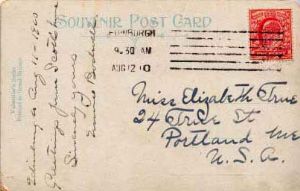 SOUVENIR POST CARD
EDINBURGH
9.30 AM
AUG 12 10
Miss Elizabeth True
24 Tree St
Portland Me
U.S.A.
Edinburgh Aug 11-1910
Greetings from Scotland
Sincerely yours